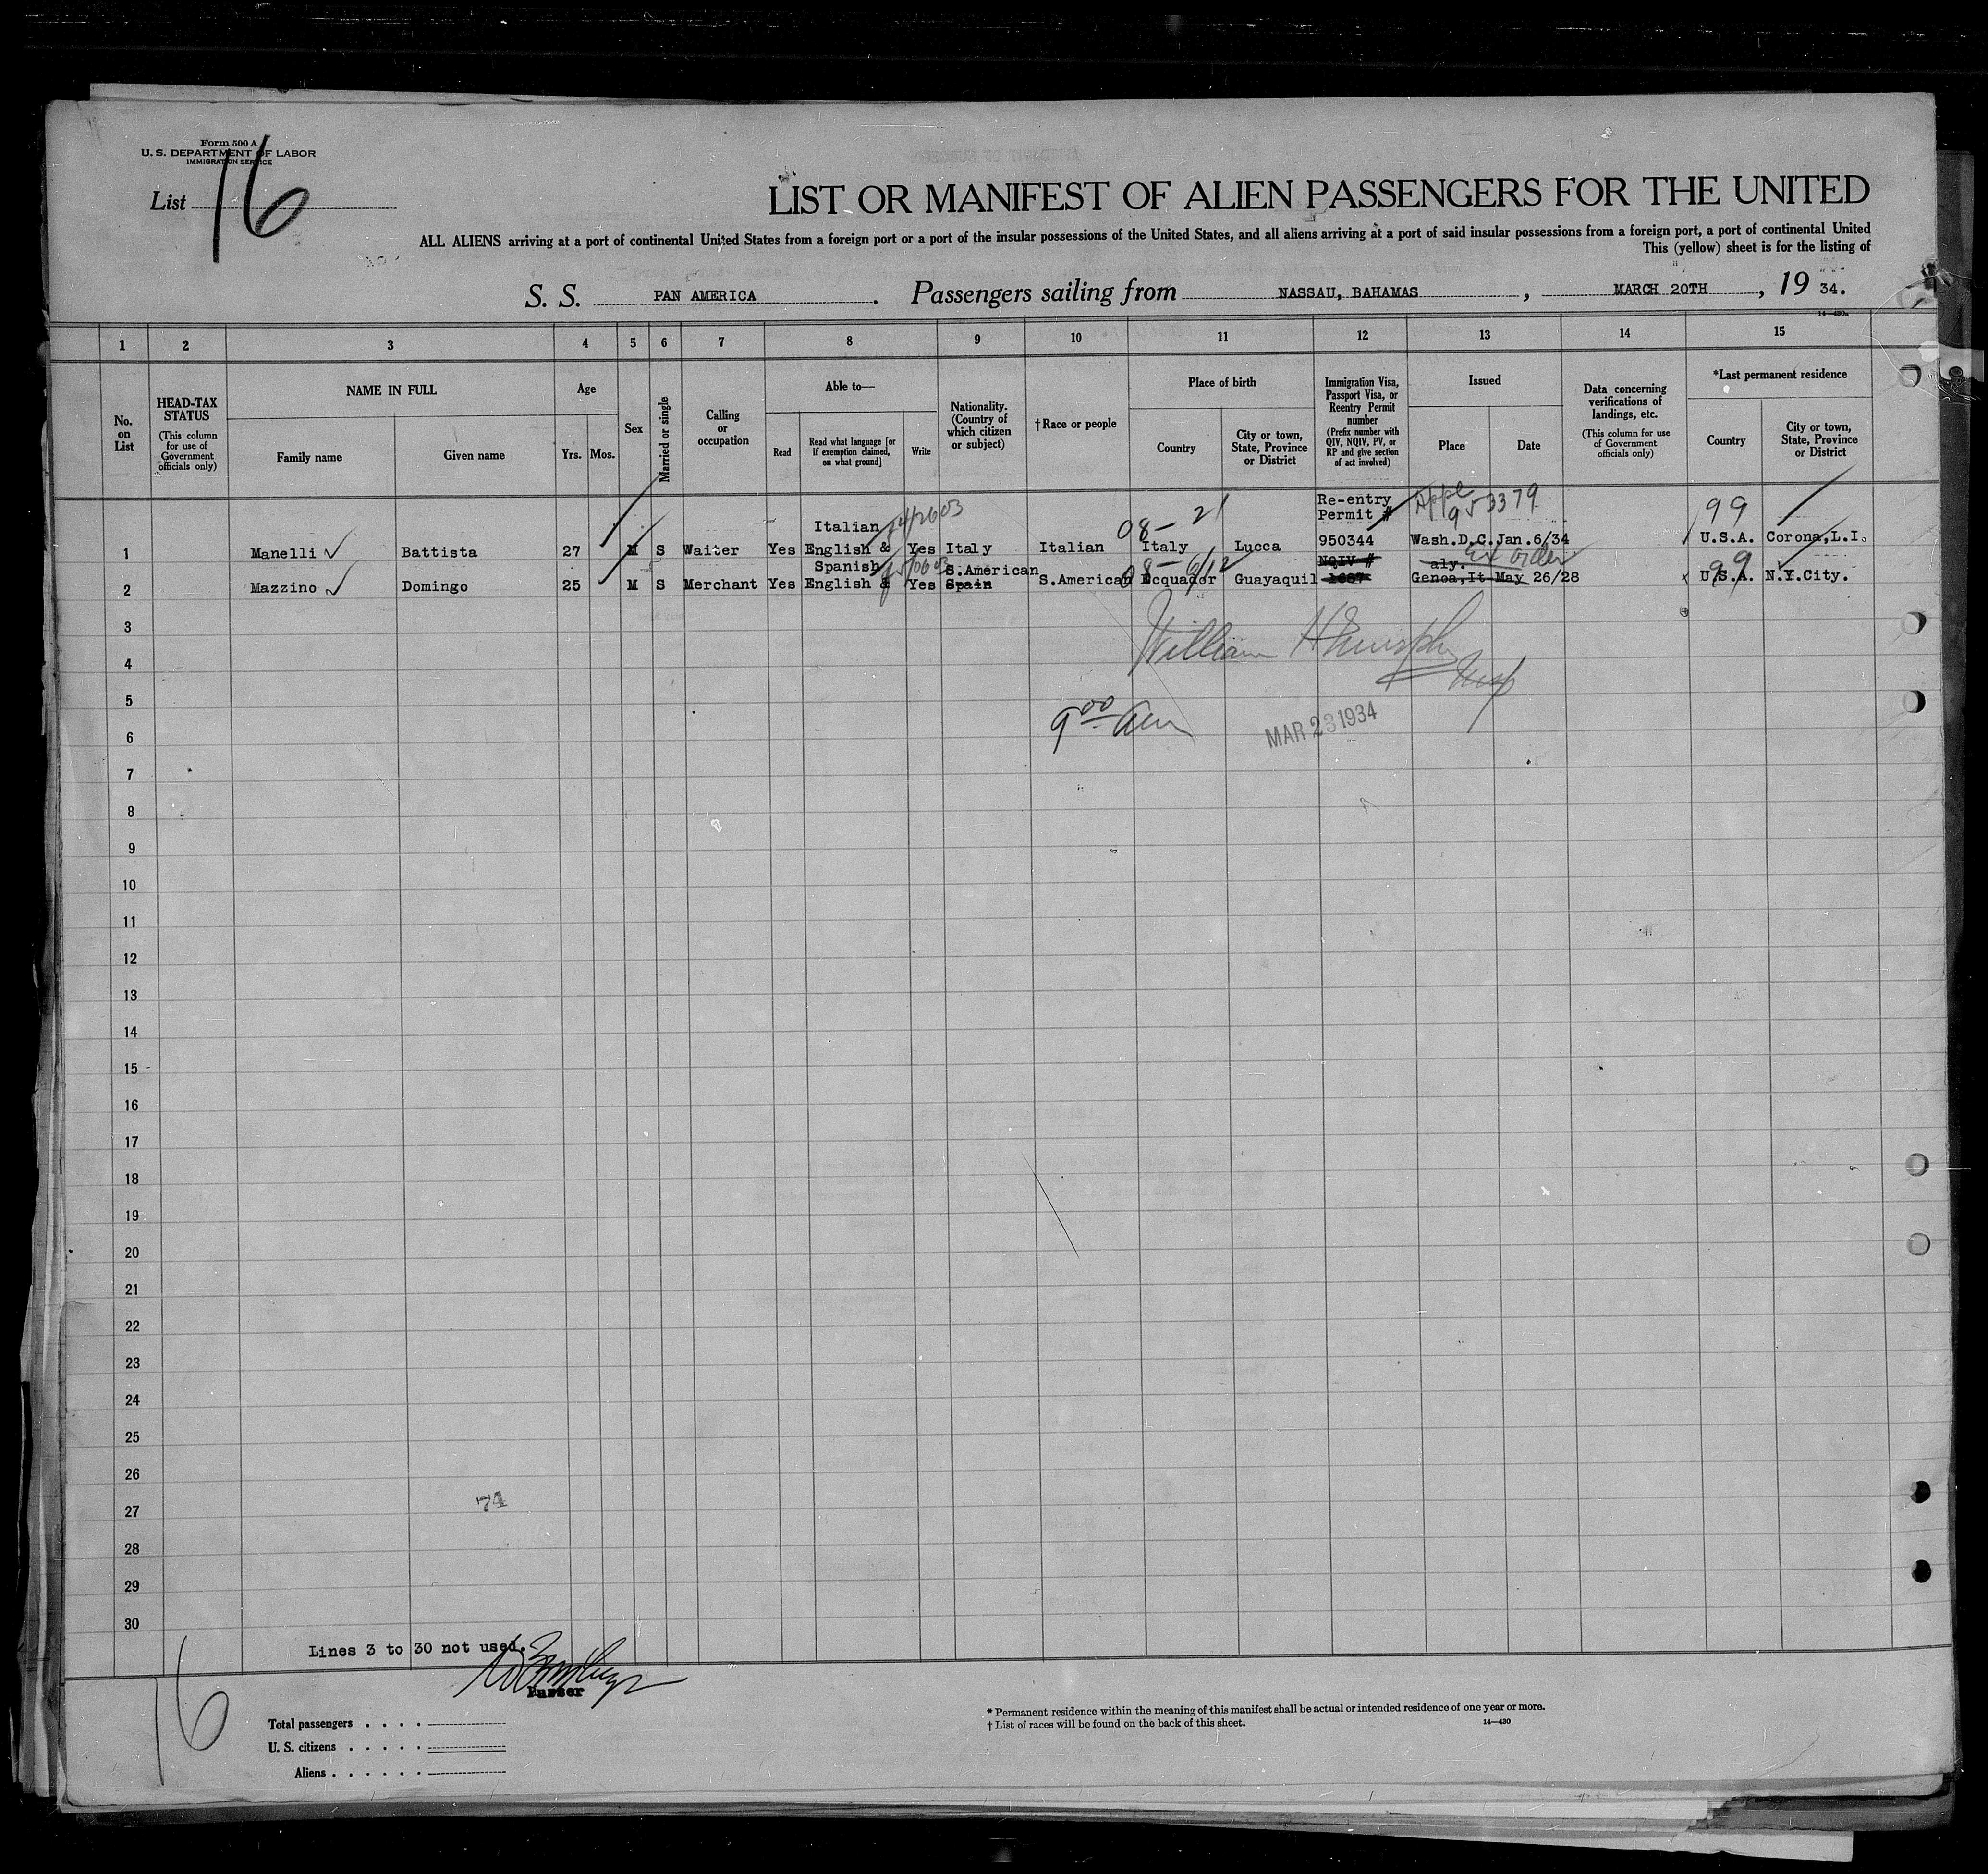 Form 500 A
U. S. DEPARTMENT OF LABOR
IMMIGRATION SERVICE
List 16
LIST OR MANIFEST OF ALIEN PASSENGERS FOR THE UNITED
ALL ALIENS arriving at a port of continental United States from a foreign port or a port of the insular possessions of the United States, and all aliens arriving at a port of said insular possessions from a foreign port, a port of continental United
This (yellow) sheet is for the listing of
S. S. PAN AMERICA. Passengers sailing from NASSAU, BAHAMAS, MARCH 20TH, 19 34.
14—430a
1 2 3 4 5 6 7 8 9 10 11 12 13 14 15
No. on List
HEAD-TAX STATUS
(This column for use of Government officials only)
NAME IN FULL
Family name
Given name
Age
Yrs. Mos.
Sex
Married or single
Calling or occupation
Able to—
Read
Read what language [or if exemption claimed, on what ground]
Write
Nationality. (Country of which citizen or subject)
†Race or people
Place of birth
Country
City or town, State, Province or District
Immigration Visa, Passport Visa, or Reentry Permit number
(Prefix number with QIV, NQIV, PV, or RP and give section of act involved)
Issued
Place
Date
Data concerning verifications of landings, etc.
(This column for use of Government officials only)
*Last permanent residence
Country
City or town, State, Province or District
Re-entry Permit # Appl 953379 99
Italian 08-21
1 Manelli Battista 27 M S Waiter Yes English & Yes Italy Italian Italy Lucca 950344 Wash.D.C. Jan.6/34 U.S.A. Corona,L.I.
Spanish S.American 08-6/12 NQIV # aly. Ex order 99
2 Mazzino Domingo 25 M S Merchant Yes English & Yes Spain S.American Ecquador Guayaquil 1687 Genoa,It May 26/28 U.S.A. N.Y.City.
3
William
4
5
9 00 am MAR 23 1934
6
7
8
9
10
11
12
13
14
15
16
17
18
19
20
21
22
23
24
25
26
27 74
28
29
30
Lines 3 to 30 not used.
Purser
16
Total passengers . . . .
U. S. citizens . . . . .
Aliens . . . . . .
* Permanent residence within the meaning of this manifest shall be actual or intended residence of one year or more.
† List of races will be found on the back of this sheet. 14—430